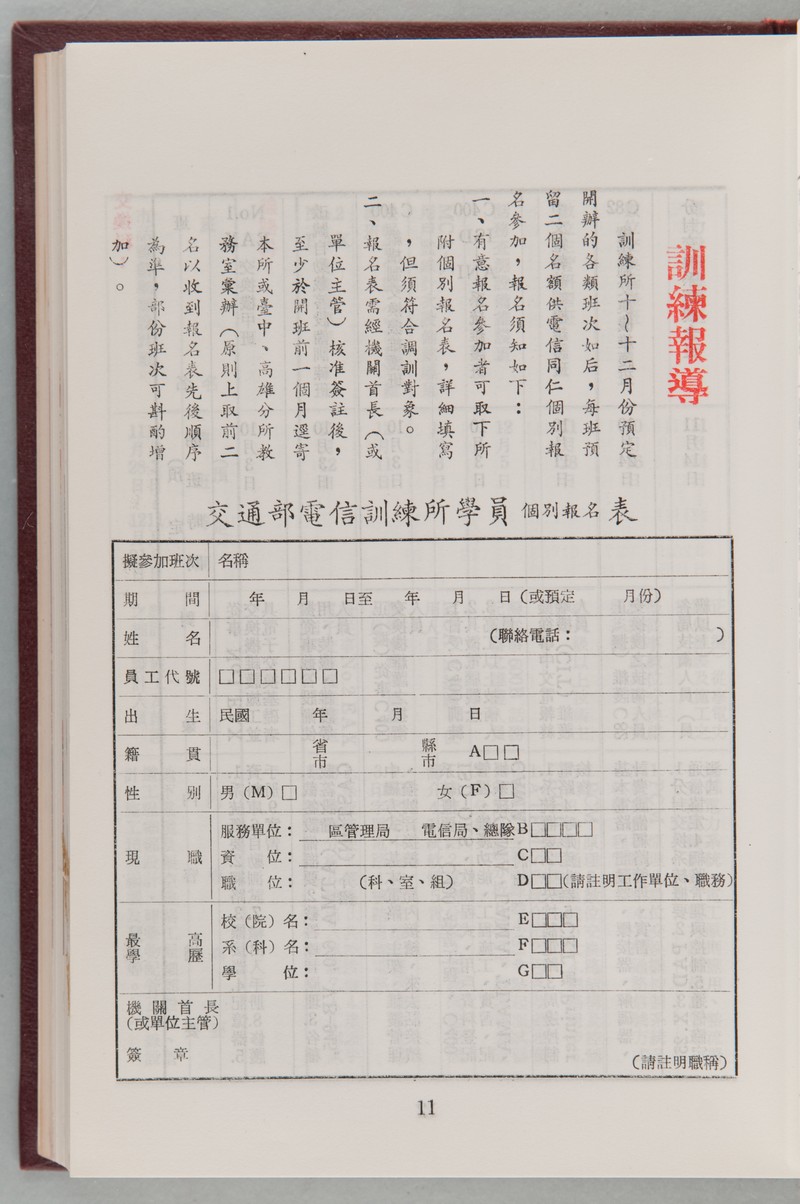 訓練報導
訓練所十~十二月份預定
開辦的各類班次如后，每班預
留二個名額供電信同仁個別報
名參加，報名須知如下：
一、有意報名參加者可取下所
附個別報名表，詳細填寫
，但須符合調訓對象。
二、報名表需經機關首長（或
單位主管）核准簽註後，
至少於開班前一個月逕寄
本所或臺中、高雄分所教
務室彙辦（原則上取前二
名以收到報名表先後順序
為準，部份班次可斟酌增
加）。
交通部電信訓練所學員個別報名表
擬參加班次 名稱
期間 年 月 日至 年 月 日（或預定 月份）
姓名 （聯絡電話： ）
員工代號 □□□□□□
出生 民國 年 月 日
籍貫 省市 縣市 A□□
性別 男（M）□ 女（F）□
現職 服務單位： 區管理局 電信局、總隊B□□□□
資位： C□□
職位： （科、室、組） D□□（請註明工作單位、職務）
最高學歷 校（院）名： E□□□
系（科）名： F□□□
學位： G□□
機關首長
（或單位主管）
簽章 （請註明職稱）
11